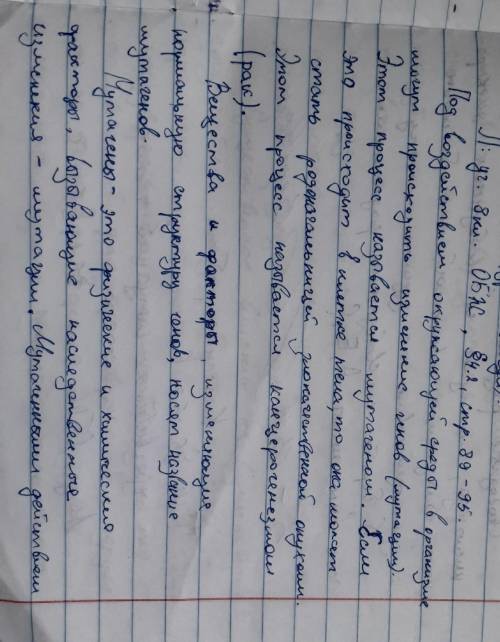 Л: уч. 8 кл. ОБЖ, §4.2, стр. 89-95.
Под воздействием окружающей среды в организме
могут происходить изменение генов (мутации).
Этот процесс называется мутагеном. Если
это происходит в клетке тела, то она может
стать родоначальницей злокачественной опухоли.
Этот процесс называется канцерогенезом
(рак).
Вещества и факторы, изменяющие
нормальную структуру генов, носят название
мутагенов.
Мутагены - это физические и химические
факторы, вызывающие наследственные
изменения - мутации. Мутагенным действием